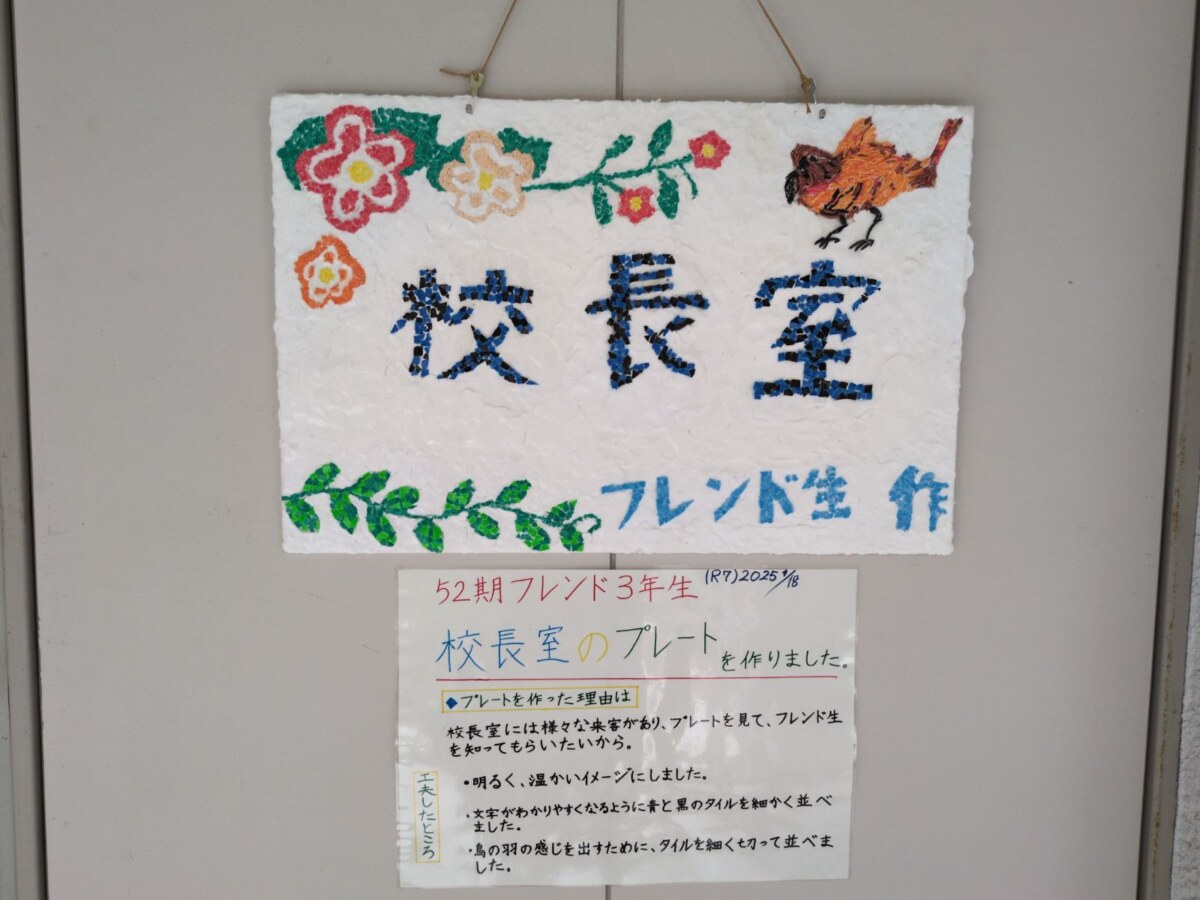 校長室
フレンド生 作
52期フレンド3年生 (R7)2025 9/18
校長室のプレートを作りました。
◆プレートを作った理由は
校長室には様々な来客があり、プレートを見て、フレンド生
を知ってもらいたいから。
工夫したところ
・明るく、温かいイメージにしました。
・文字がわかりやすくなるように青と黒のタイルを細かく並べ
ました。
・鳥の羽の感じを出すために、タイルを細く切って並べま
した。